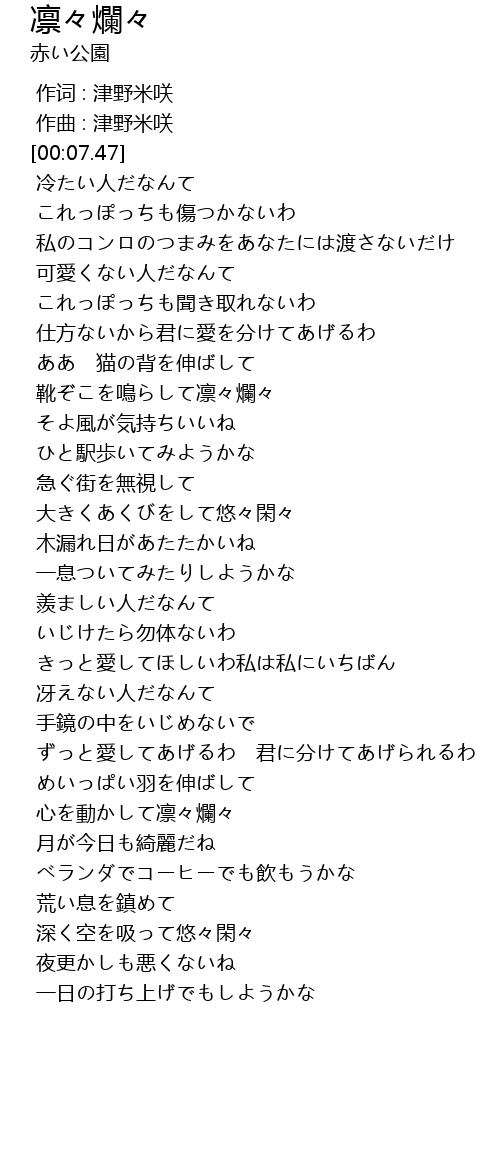 凛々爛々
赤い公園
作词 : 津野米咲
作曲 : 津野米咲
[00:07.47]
冷たい人だなんて
これっぽっちも傷つかないわ
私のコンロのつまみをあなたには渡さないだけ
可愛くない人だなんて
これっぽっちも聞き取れないわ
仕方ないから君に愛を分けてあげるわ
ああ　猫の背を伸ばして
靴ぞこを鳴らして凛々爛々
そよ風が気持ちいいね
ひと駅歩いてみようかな
急ぐ街を無視して
大きくあくびをして悠々閑々
木漏れ日があたたかいね
一息ついてみたりしようかな
羨ましい人だなんて
いじけたら勿体ないわ
きっと愛してほしいわ私は私にいちばん
冴えない人だなんて
手鏡の中をいじめないで
ずっと愛してあげるわ　君に分けてあげられるわ
めいっぱい羽を伸ばして
心を動かして凛々爛々
月が今日も綺麗だね
ベランダでコーヒーでも飲もうかな
荒い息を鎮めて
深く空を吸って悠々閑々
夜更かしも悪くないね
一日の打ち上げでもしようかな